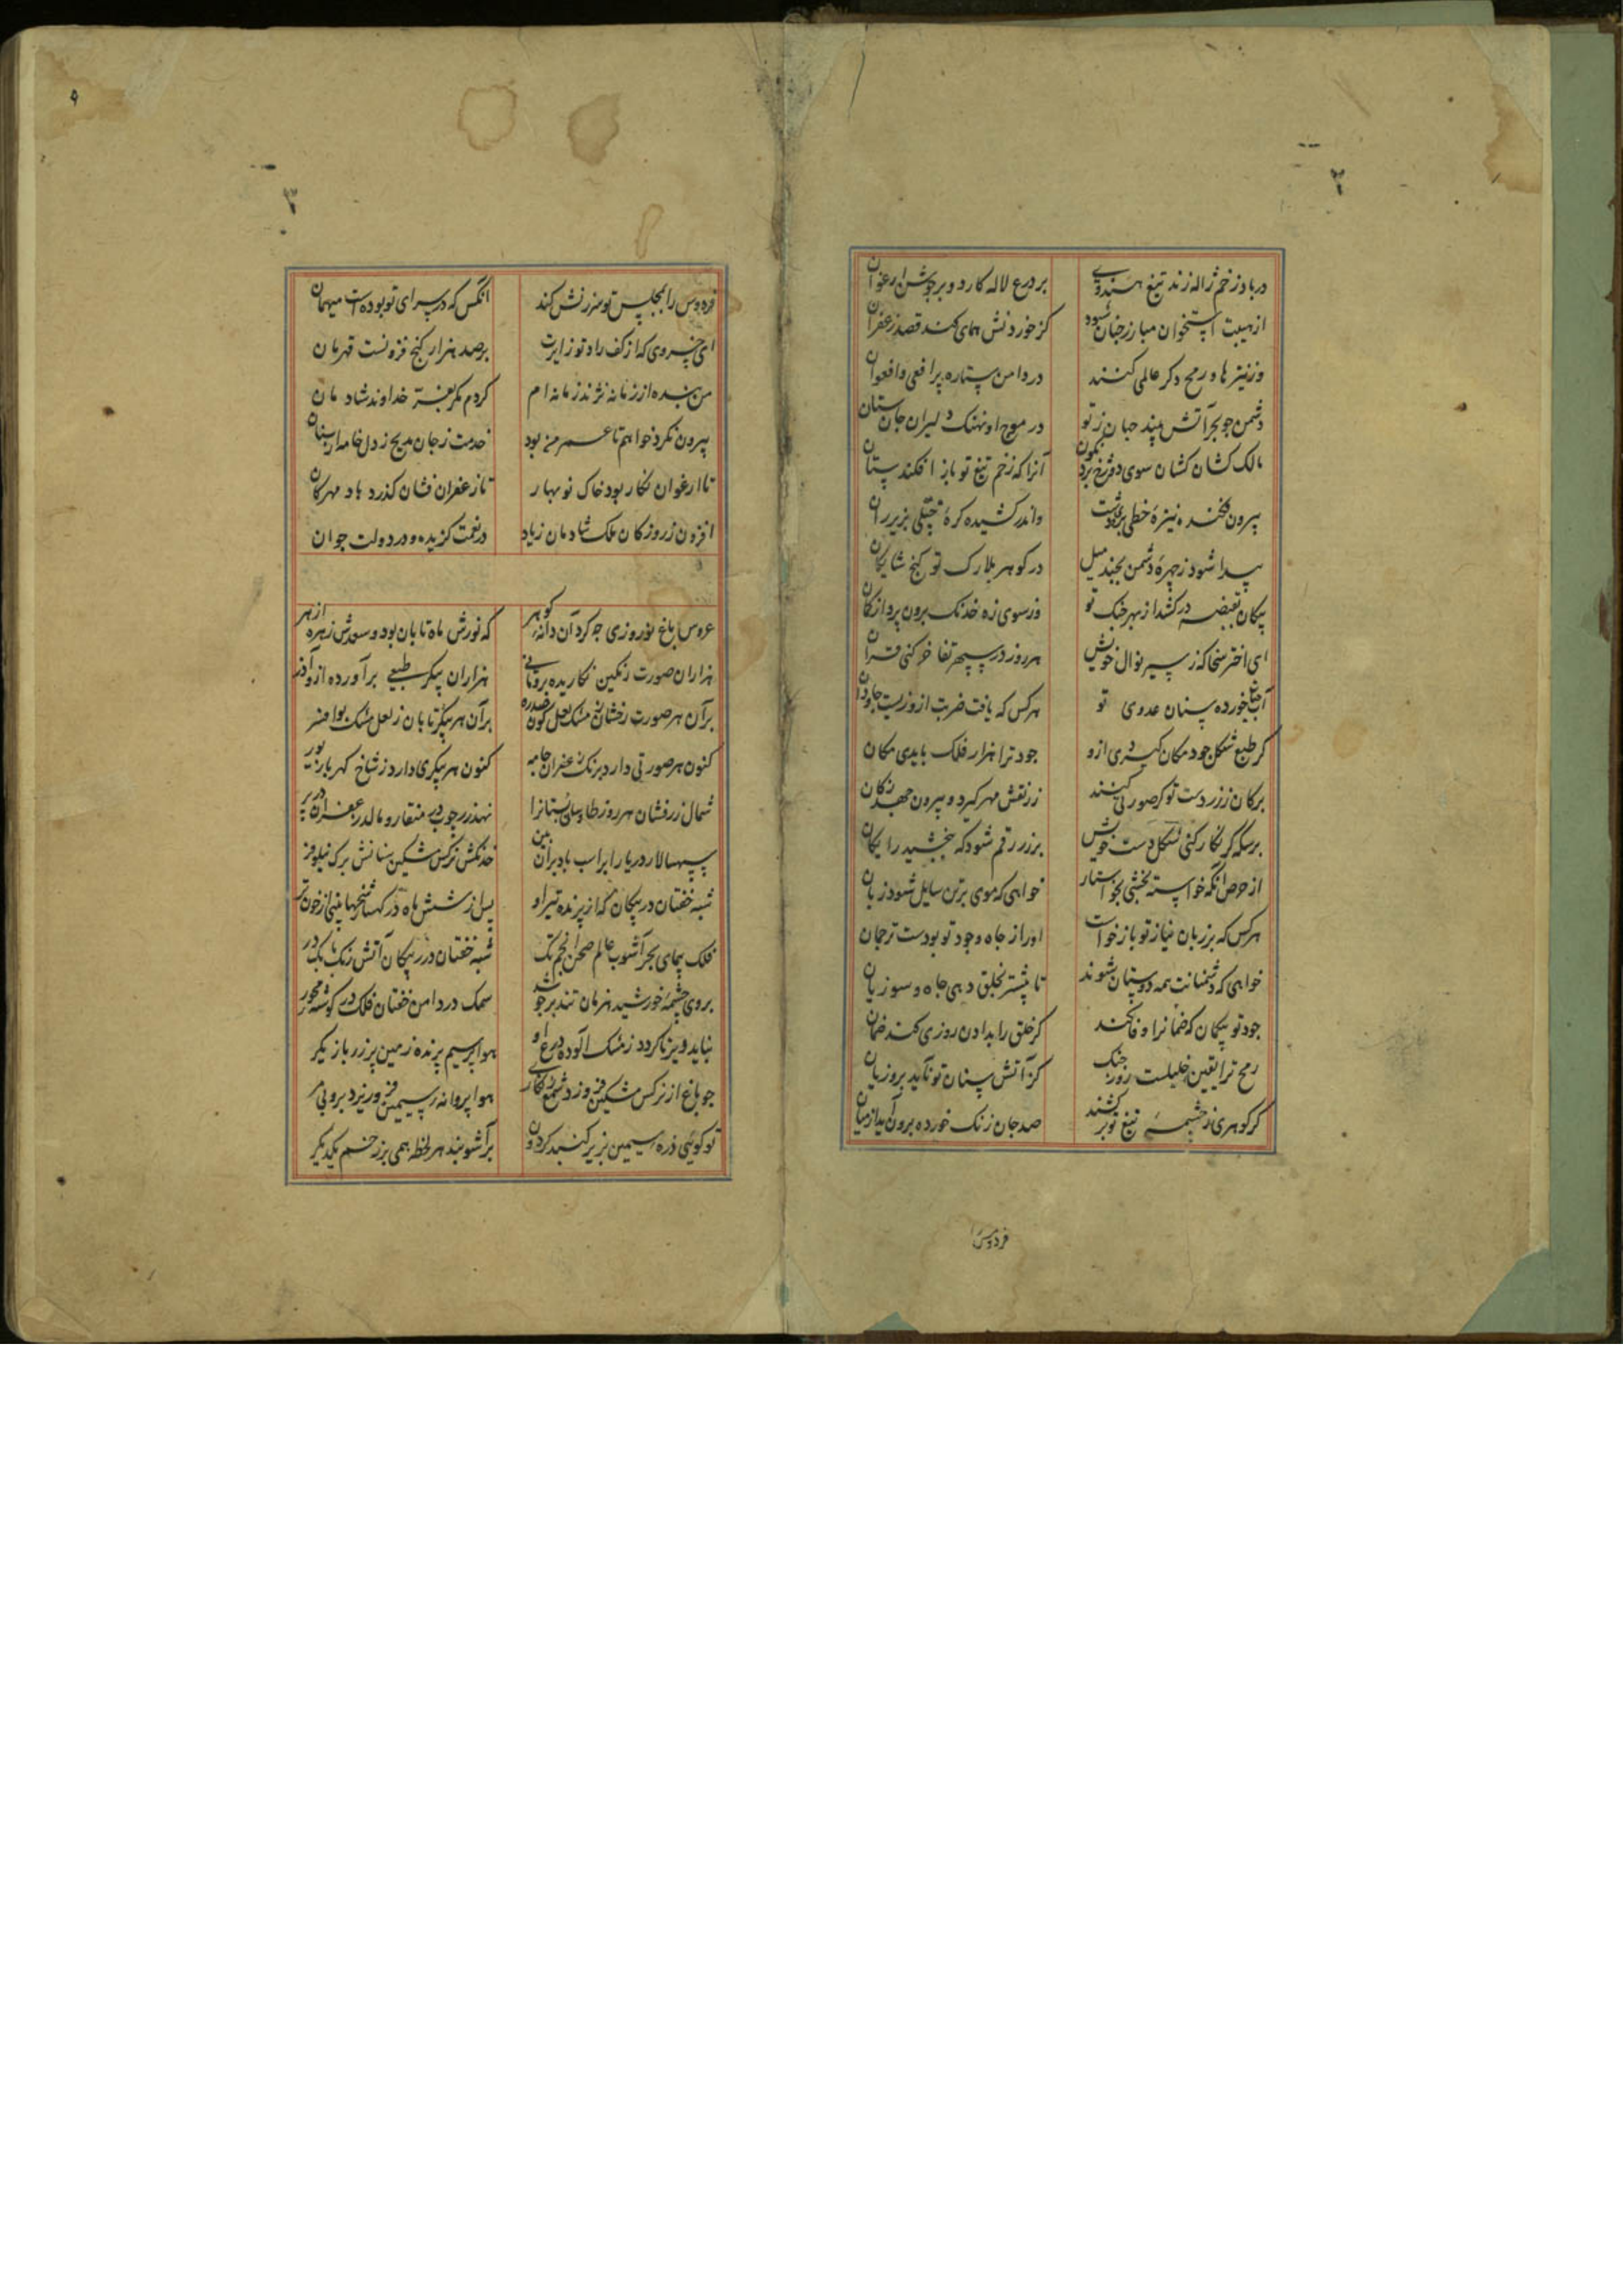 ۲
در باد زخم ژاله زند تیغ هندوی بر درع لاله کارد و بر جوشن ارغوان
از هیبت استخوان مبارز چنان شود کز خوردنش همای کند قصد زعفران
وز نیزها و رمح دکر عالمی کنند در دامن ستاره پر افعی و افعوان
دشمن جو بحر آتش بیند جهان ز تو در موج او نهنک دلیران جان ستان
مالک کشان کشان سوی دوزخ برد نکون آنرا که زخم تیغ تو باز افکند ستان
بیرون فکنده نیزهٔ خطی واندر کشیده کرهٔ ختلی بزیر ران
پیدا شود ز چهرهٔ دشمن بجند میل در کوهر بلارک تو کنج شایکان
پیکان بقبضه در کشد از بهر جنک تو وز سوی زه خدنک برون پرد از کمان
ای اختر سخا که ز سیر نوال خویش هر روز در سپهر تفاخر کنی قران
آب خورده سنان عدوی تو هر کس که یافت ضربت ازو زیست جاودان
کر طبع شکل جود مکان کیردی ازو جود ترا هزار فلک بایدی مکان
بر کان زر ز دست تو کر صورتی کنند زر نقش مهر کیرد و بیرون جهد ز کان
بر سکه کر نکار کنی شکل دست خویش بر زر رقم شود که ببخشید رایکان
از حرص آنکه خواسته بخشی بخواستار خواهی که موی بر تن سایل شود زبان
هر کس که بر زبان نیاز تو باز خواست او را ز جاه وجود تو بودست ترجمان
خواهی که دشمنانت همه دوستان شوند تا بیشتر بخلق دهی جاه و سوزیان
جود تو بیکمان که ضمانرا وفا کند کز خلق را بدادن روزی کند ضمان
رمح ترا یقین خلیلست روز جنک کز آتش سنان تو ناید برو زیان
کر کوهری ز چشمهٔ تیغ تو بر کشند صد جان زنک خورده برون آید از میان
فردوس
۹
۳
فردوس را بمجلس تو سرزنش کند آنکس که در سرای تو بودست میهمان
ای خسروی که از کف راد تو زایرت بر صد هزار کنج فزونست قهرمان
من بنده از زمانه نژند زمانه ام کردم مکر بعز خداوند شادمان
بیرون نکرد خواهم تا عمر من بود خدمت ز جان مدیح ز دل خامه از بنان
تا ارغوان نکار بود خاک نوبهار تا زعفران فشان کذرد باد مهرکان
افزون ز روزکان ملک شادمان زیاد در نعمت کزیده و در دولت جوان
عروس باغ نوروزی جه کرد آن دانه کوهر که نورش ماه تابان بود و سعدش زهره ازهر
هزاران صورت رنکین نکاریده برو مانی هزاران پیکر طبعی برآورده ازو آذر
بر آن هر صورت رخشان ز مشک لعل کون صدره بر آن هر پیکر تابان ز لعل مشک بو افسر
کنون هر صورتی دارد برنک زعفران جامه کنون هر پیکری دارد ز شاخ کهربا زیور
شمال زرفشان هر روز طاوسان بستانرا نهد زر چوبه بر منقار و مالد زعفران بر پر
سپهسالار دریا را بر اسب باد بران بین خدنکش نرکس مشکین سنانش برک نیلوفر
شبه خفتان در پیکان که از پرنده تیر او پس از شش ماه در کهسار بینی از خون تر
فلک پیمای بحر آشوب عالم صحن انجم تک شبه خفتان در پیکان آتش رنک بابک در
بروی چشمهٔ خورشید هزمان تند برجوشد سمک در دامن خفتان فلک در کوشه محور
بباید ویژنا کردد ز مشک آلوده درع او هوا پر سیم پرنده زمین پر زر بازیکر
جو باغ از نرکس مشکین فروزد شمع زنکاری هوا پروانهٔ سیمین فرو ریزد برو بی مر
تو کوئی ذره سیمین بزیر کنبد کردون بر آشوبند هر لحظه همی بر زخم یکدیکر